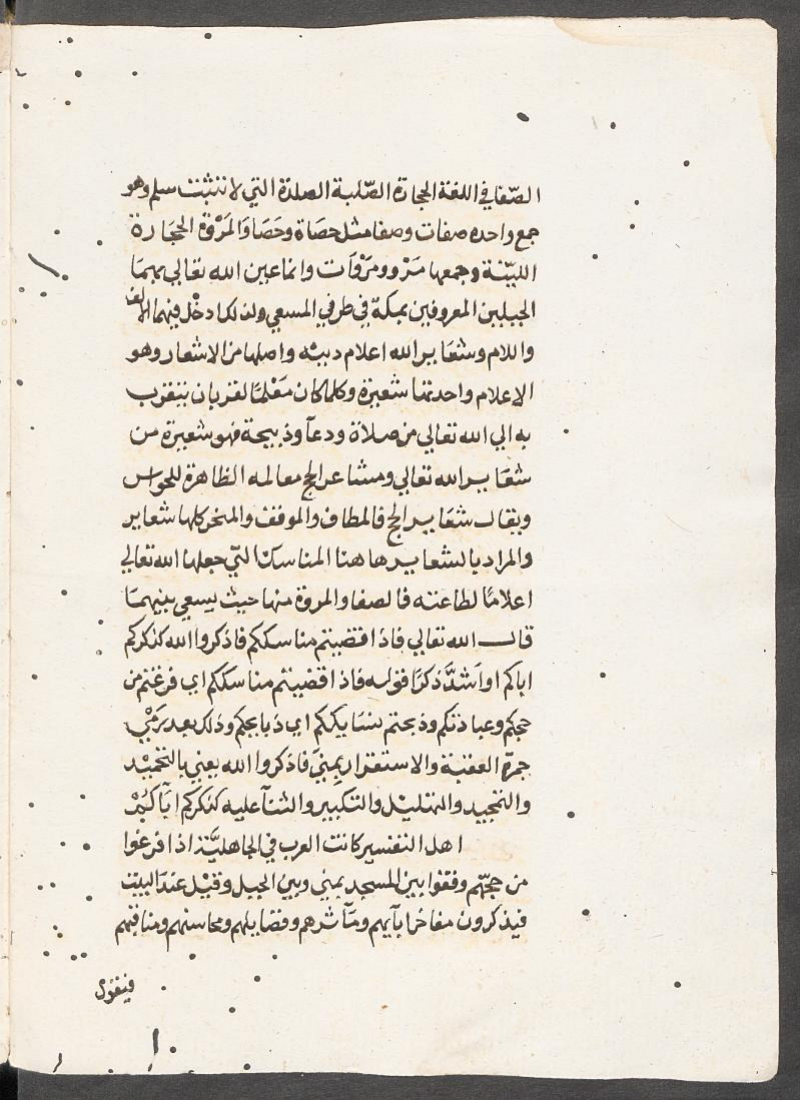 الصّفا في اللغة الحجارة الصّلبة الصلدة التي لا تنبت سلم وهو
جمع واحده صفات وصفا مثل حصاة وحَصَا وَالمَرْوَة الحجَارة
الليّنة وجمعها مَرْو ومرْوَات وانما عين الله تعالي بهمَا
الجبلين المعروفين بمكة في طرفي المسعي ولذلك ادخْل فيهما الالف
واللام وشعَاير الله اعلام دينه واصلها من الاشعار وهو
الاعلام واحدتها شعيرة وكلما كان مَعْلمًا لقربان يتقرب
به الي الله تعالي من صلاة ودعآ وذبيحة فهو شعيرة من
شعَاير الله تعالي ومشاعر الحج معالمه الظاهرة للحواس
ويقال شعَاير الحج فالمطاف والموقف والمنحر كلها شعاير
والمراد بالشعاير هاهنا المناسك التي جعلها الله تعالي
اعلامًا لطاعته فالصفا والمروة منها حيث يسعي بينهمَا
قال الله تعالي فاذا قضيتم مناسككم فاذكروا الله كذكركم
اباكم او اشدَّ ذكرًا قوله فاذا قضيتم مناسككم اي فرغتم من
حجكم وعباداتكم وذبحتم نسَايككم اي ذبايحكم وذلك بعد رَمْي
جمرة العقبة والاستقرار بمنيَ فاذكروا الله يعني بالتحميْد
والتمجيد والتهليل والتكبير والثنآ عليه كذكركم ابآكُمْ
اهل التفسير كانت العرب في الجاهليَّة اذا فرغوا
من حجهّم وقفوا بين المسجد بمني وبين الجبل وقيْل عندَ البيت
فيذكرون مفاخر ابآيهم ومآثرهم وفضايلهم ومحاسنهم ومناقبهم
فيقول